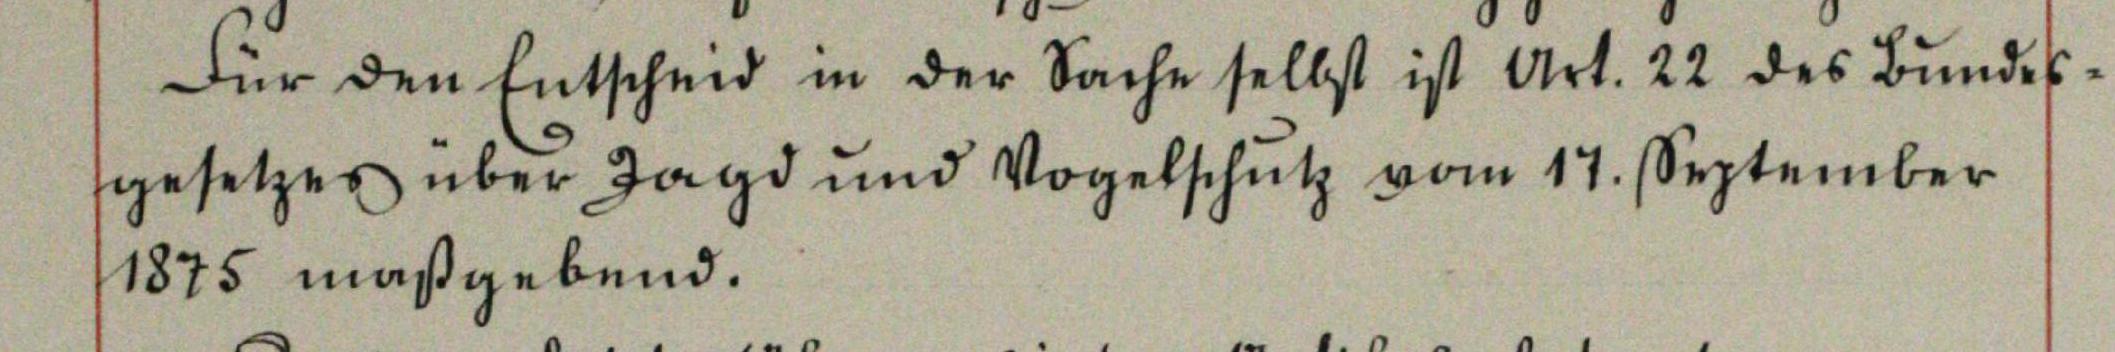 Für den Entscheid in der Sache selbst ist Art. 22 des Bundes-
gesetzes über Jagd und Vogelschutz vom 17. September
1875 maßgebend.